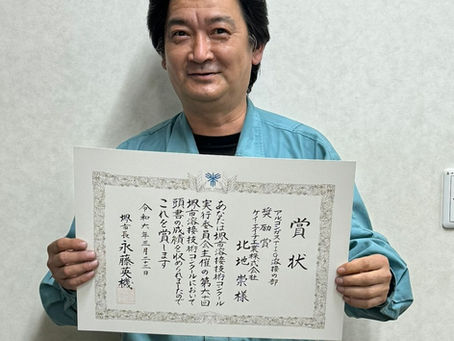 賞状
アルゴンガスTIG溶接の部
奨励賞
ケイ・エイチ工業株式会社
北地崇様
あなたは堺市溶接技術コンクール
実行委員会主催の第六十回
堺市溶接技術コンクールにおいて
頭書の成績を収められましたので
これを賞します
令和六年三月二十二日
堺市長 永藤英機